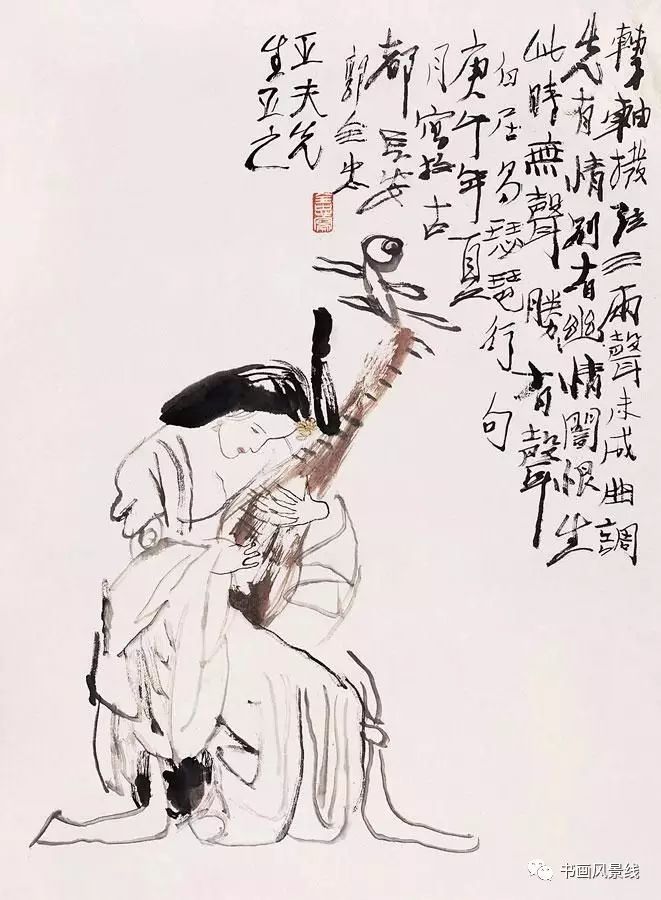 轉軸撥弦三兩聲未成曲調
先有情別有幽情闇恨生
此時無聲勝有聲
白居易琵琶行句
庚午年夏
月寫於古
都長安
郭全忠
亚夫先
生正之
书画风景线